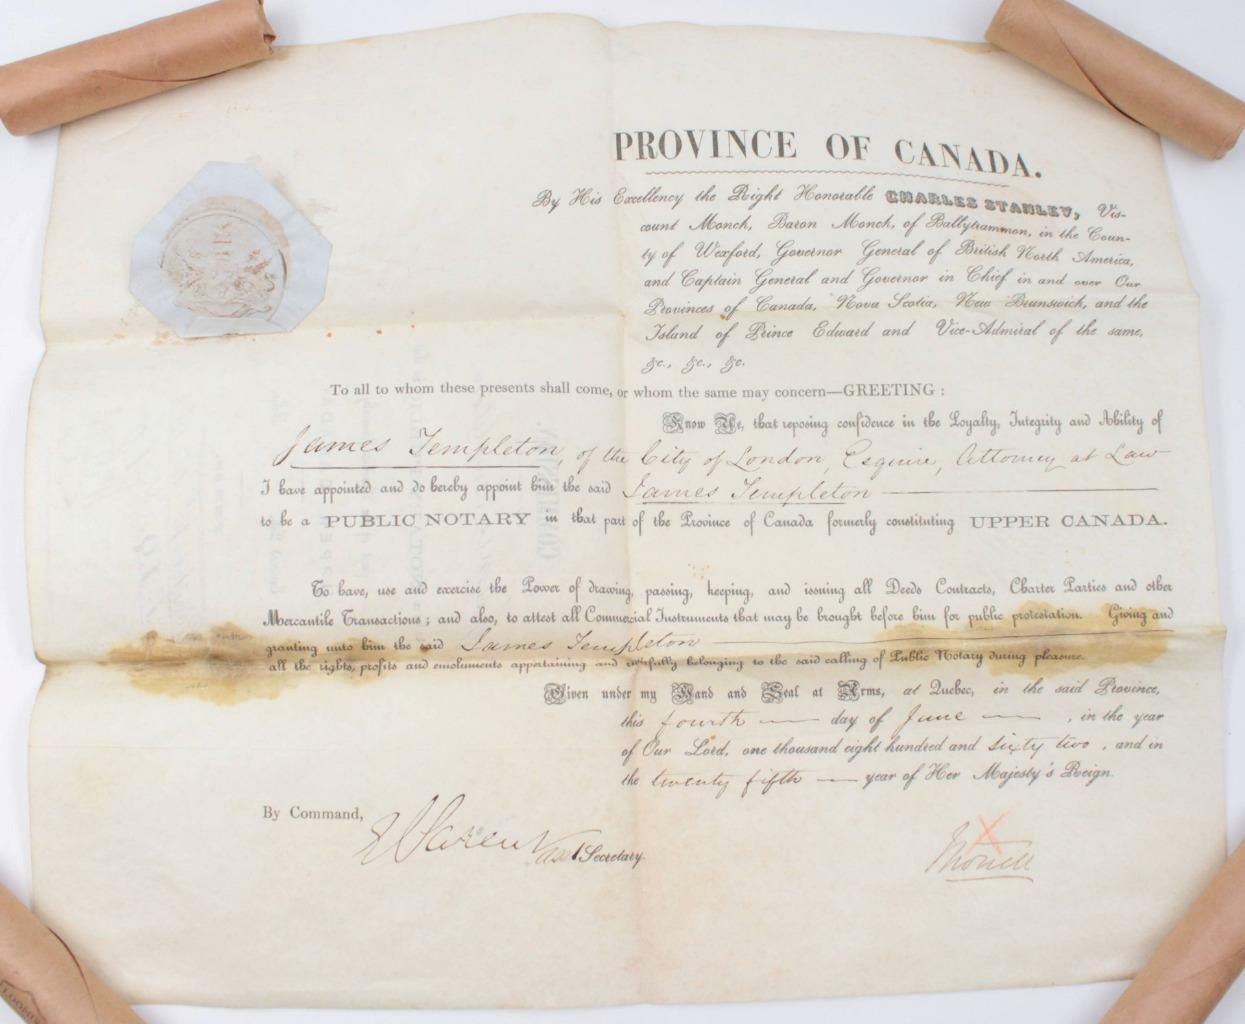 PROVINCE OF CANADA.
By His Excellency the Right Honorable CHARLES STANLEY, Vis-
count Monck, Baron Monck, of Ballytrammon, in the Coun-
ty of Wexford, Governor General of British North America,
and Captain General and Governor in Chief in and over Our
Provinces of Canada, Nova Scotia, New Brunswick, and the
Island of Prince Edward and Vice-Admiral of the same,
&c., &c., &c.
To all to whom these presents shall come, or whom the same may concern—GREETING:
Know Ye, that reposing confidence in the Loyalty, Integrity and Ability of
James Templeton, of the City of London, Esquire, Attorney at Law
I have appointed and do hereby appoint him the said James Templeton
to be a PUBLIC NOTARY in that part of the Province of Canada formerly constituting UPPER CANADA.
To have, use and exercise the Power of drawing, passing, keeping, and issuing all Deeds Contracts, Charter Parties and other
Mercantile Transactions; and also, to attest all Commercial Instruments that may be brought before him for public protestation. Giving and
granting unto him the said James Templeton
all the rights, profits and emoluments appertaining and rightfully belonging to the said calling of Public Notary during pleasure.
Given under my Hand and Seal at Arms, at Quebec, in the said Province,
this fourth day of June, in the year
of Our Lord, one thousand eight hundred and sixty two, and in
the twenty fifth year of Her Majesty's Reign.
By Command,
Asst Secretary.
Monck